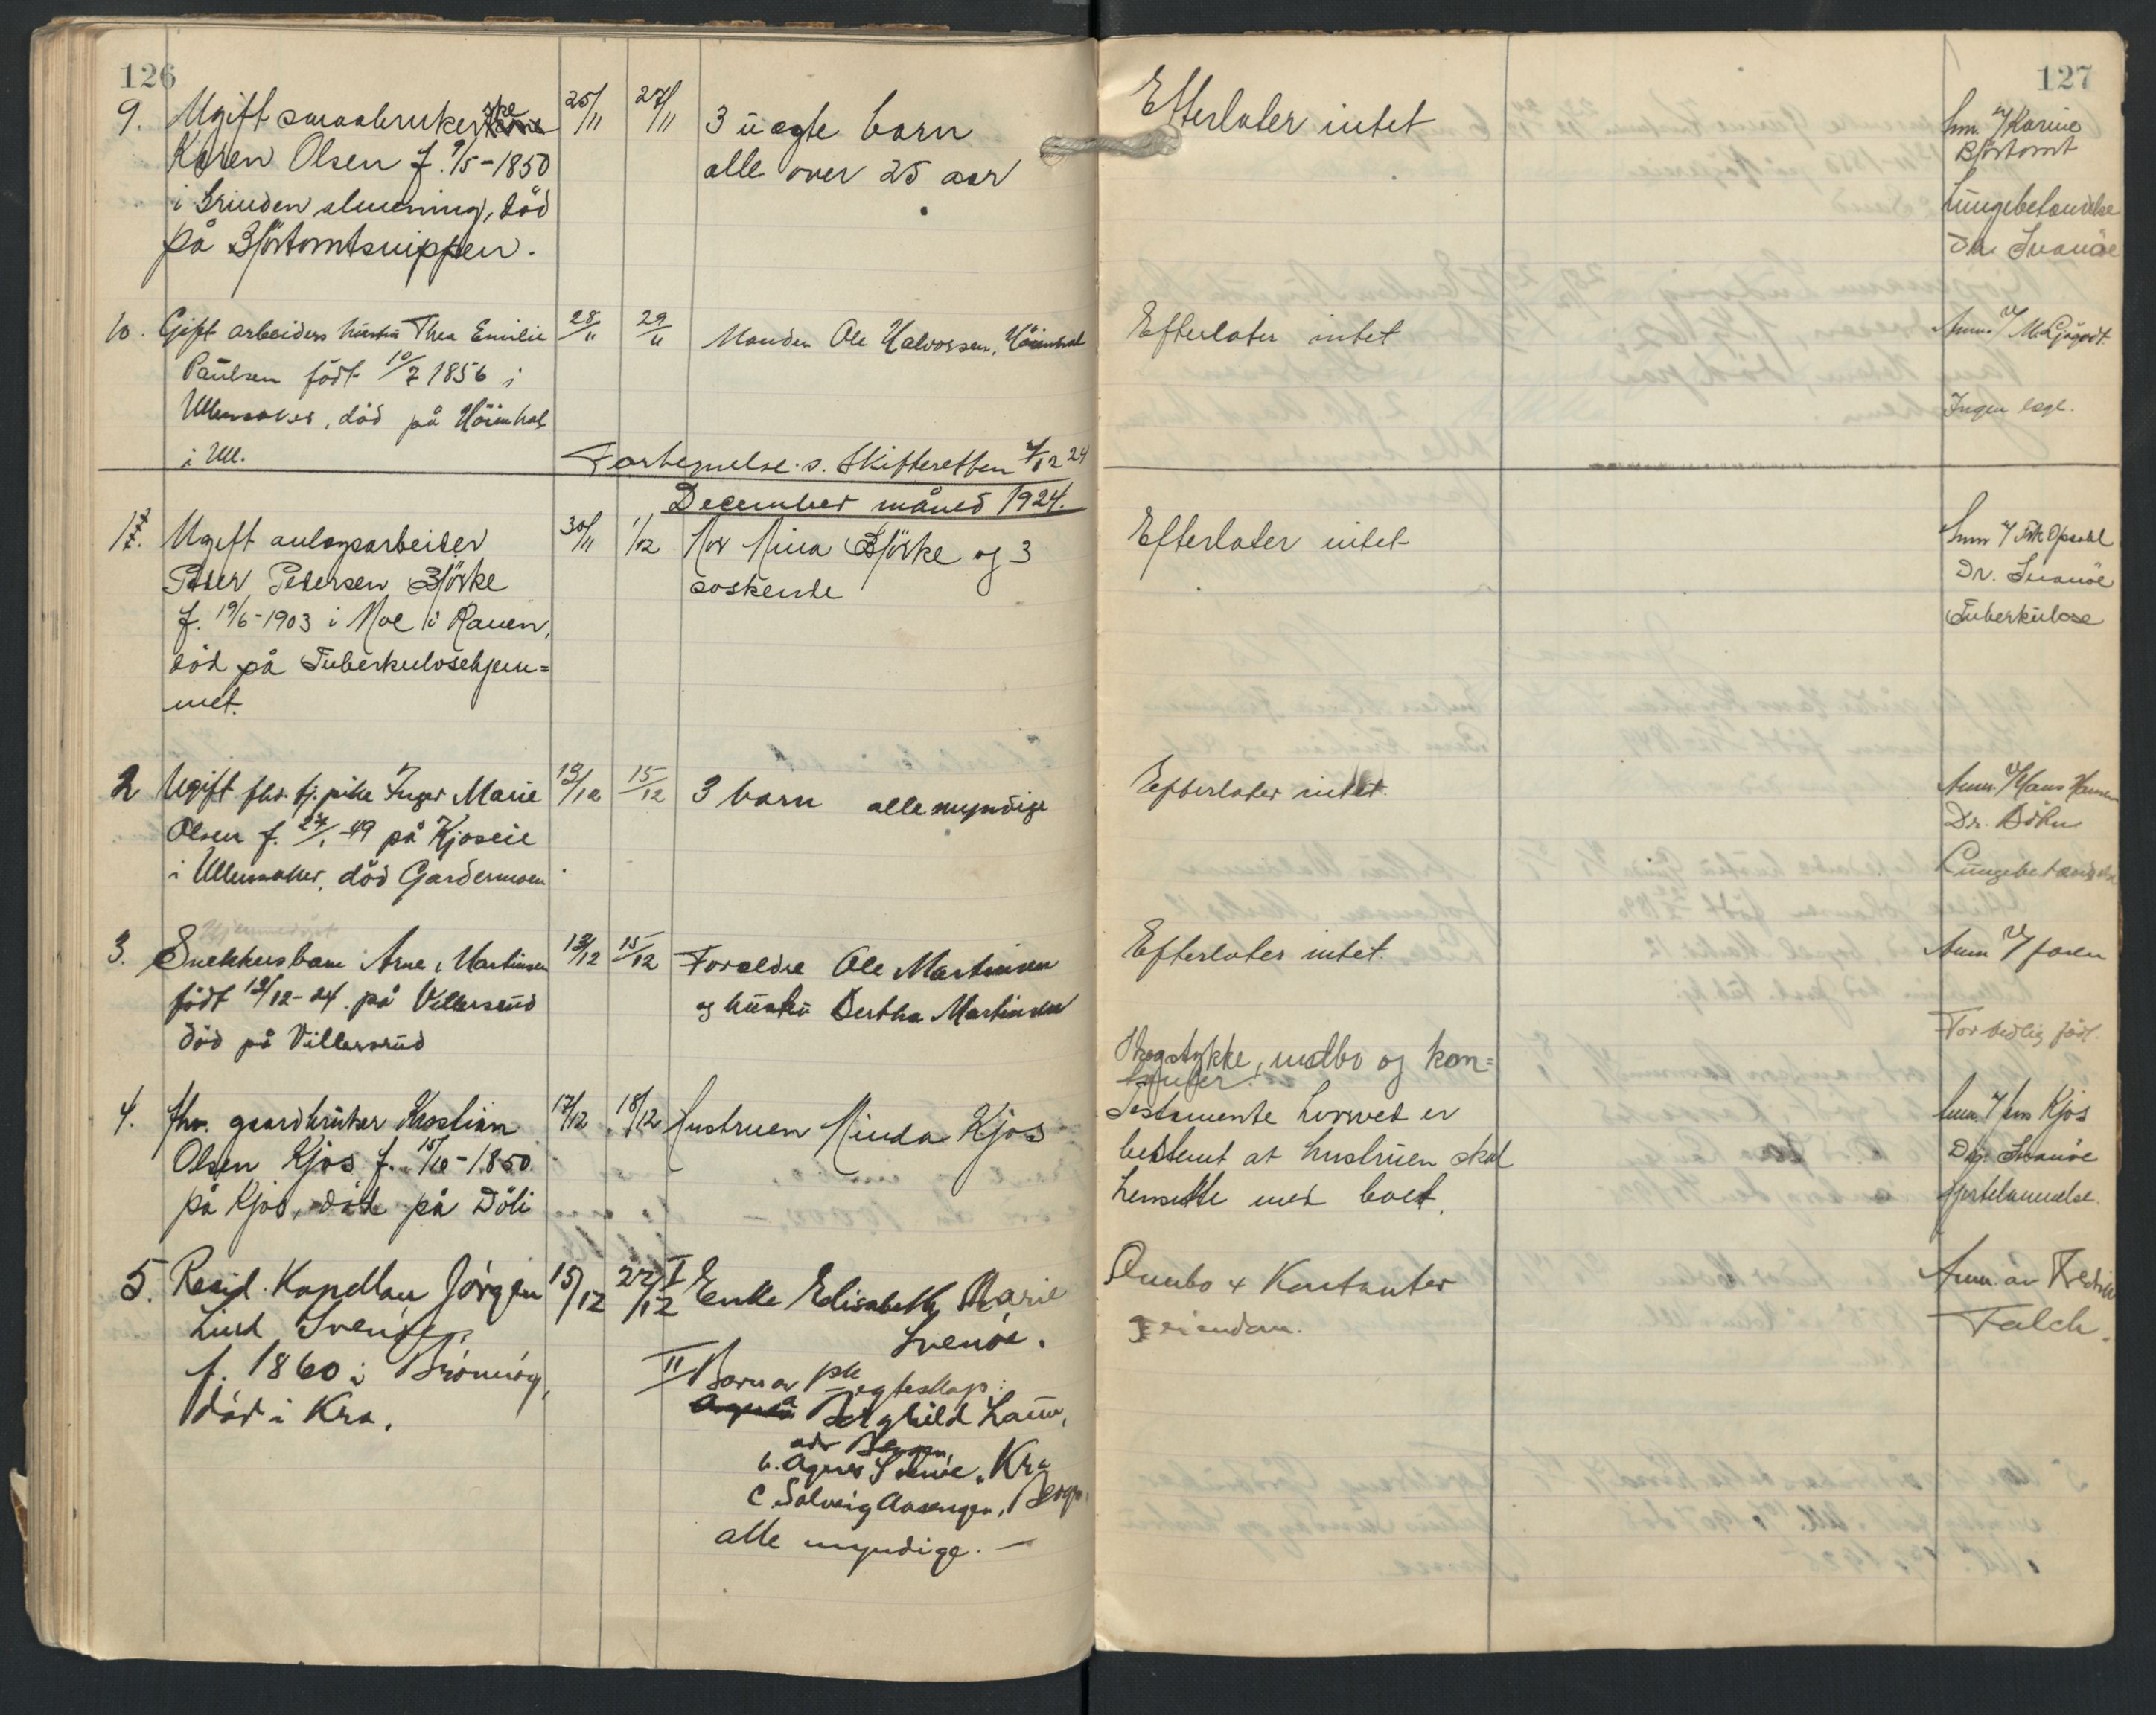 126
9. Ugift smaabruker
Karen Olsen f. 9/5-1850
i Grinden almenning, död
på Björtomtsnippen.
25/11 27/11
3 uegte barn
alle over 25 aar
10. Gift arbeiders hustru Thea Emilie
Paulsen födt 10/7 1856 i
Ullensaker, död på Höimhal
i Ull.
28/11 29/11
Manden Ole Halvorsen, Höimhal
Fortegnelse s. Skifteretten 2/12 24
December måned 1924.
1. Ugift anlægsarbeider
Peder Pedersen Björke
f. 19/6-1903 i Moe i Ranen,
död på Tuberkulosehjem=
met.
30/11 1/12
Mor Mina Björke og 3
søskende
2 Ugift fhv. tj. pike Inger Marie
Olsen f. 27/1-49 på Kjoseie
i Ullensaker, död Gardermoen
13/12 15/12
3 barn alle myndige
Hjemmedöpt
3. Snekkers barn Arne Martinsen
födt 12/12-24. på Villersrud
död på Villersrud
13/12 15/12
Forældre Ole Martinsen
og hustru Bertha Martinsen
4. fhv. gaardbruker Kristian
Olsen Kjos f. 15/10-1850
på Kjos, död på Döli
17/12 18/12
Hustruen Minda Kjos
5. Resid. Kapellan Jörgen
Lind Svenöe,
f. 1860 i Brönnöy,
död i Kra.
15/12 22/12
I Enke Elisabeth Marie
Svenöe.
II Barn av 1ste egteskap:
a Berghild Laum,
adr Bergen,
b. Agnes Svenöe, Kra
c. Solveig Aasengen, Bergen,
alle myndige. —
127
Efterlater intet
Anm. v/ Karine
Björtomt
Lungebetændelse
Dr. Svanöe
Efterlater intet
Anm. v/ M. Ljøgodt
Ingen læge.
Efterlater intet
Anm v/ Frk Opsahl
Dr. Svanöe
Tuberkulose
Efterlater intet.
Anm. v/ Hans Hansen
Dr. Böhn
Lungebetændelse
Efterlater intet.
Anm v/ faren
For tidlig födt.
Skogstykke, indbo og kon=
tanter.
Testamente hvorved er
bestemt at hustruen skal
hensitte med boet.
Anm. v/ fru Kjos
Dr. Svanöe
Hjertelammelse.
Innbo + Kontanter
g eiendom.
Anm av Fredrik
Falch.